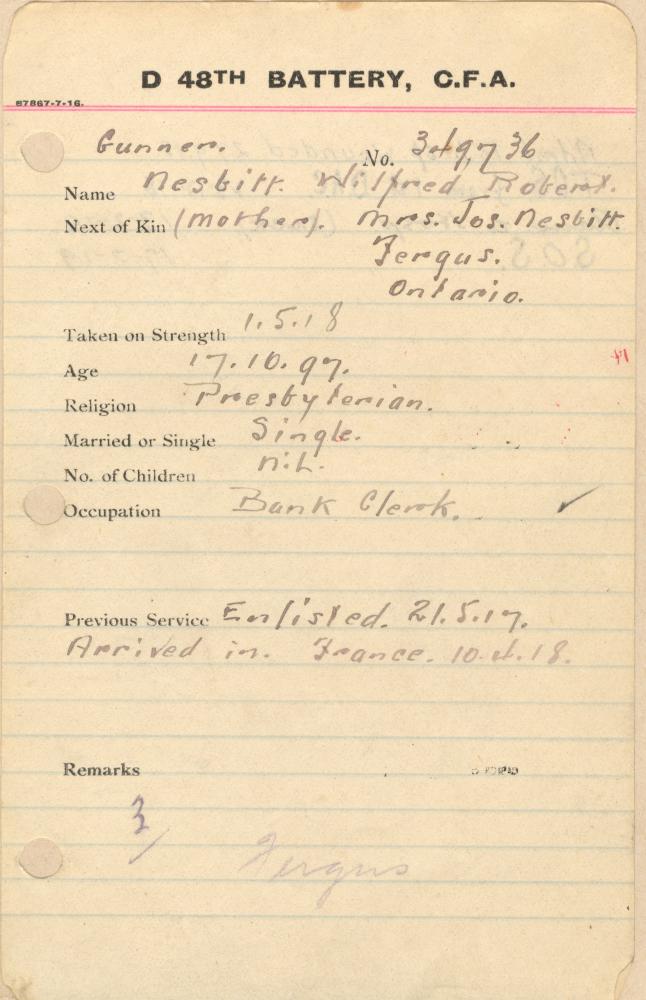 D 48TH BATTERY, C.F.A.
67867-7-16.
Gunner. No. 349736
Name Nesbitt. Wilfred Robert.
Next of Kin (Mother). Mrs. Jos. Nesbitt.
Fergus.
Ontario.
Taken on Strength 1.5.18
Age 17.10.97.
Religion Presbyterian.
Married or Single Single.
No. of Children nil.
Occupation Bank Clerk.
Previous Service Enlisted. 21.5.17.
Arrived in. France. 10.4.18.
Remarks
3/
Fergus